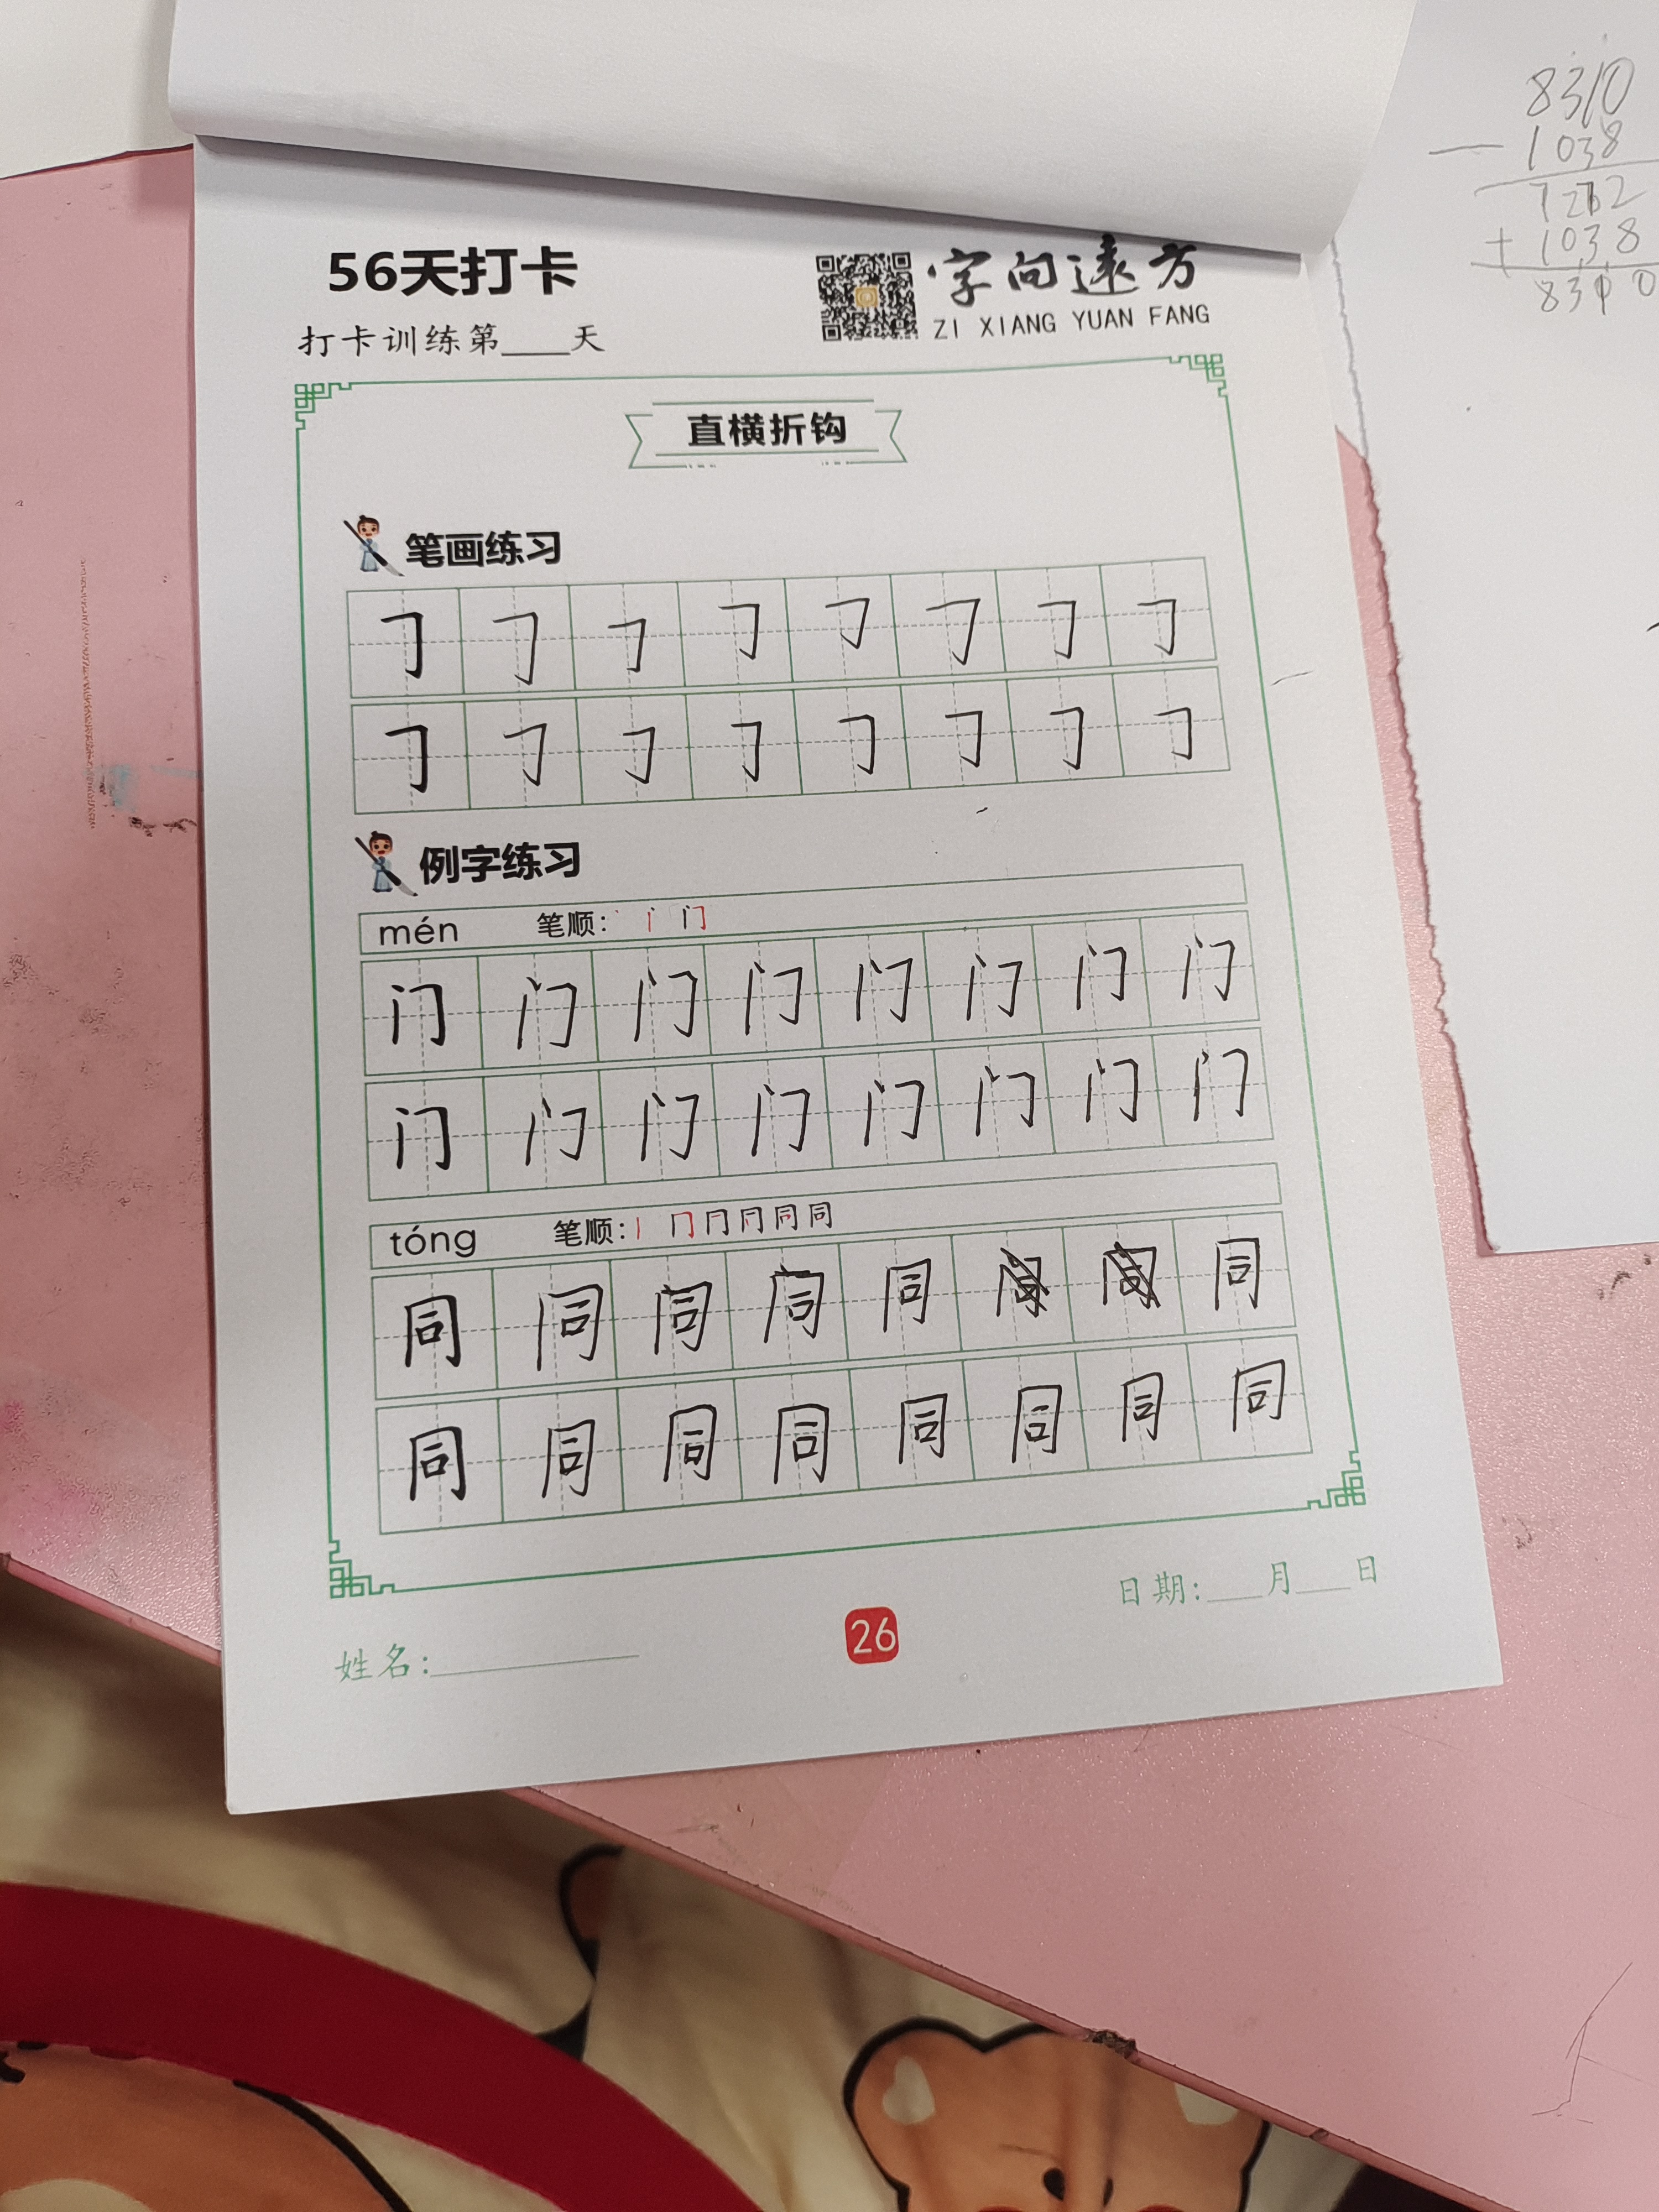 56天打卡
字向远方
打卡训练第____天
ZI XIANG YUAN FANG
直横折钩
笔画练习
𠃌 𠃌 𠃌 𠃌 𠃌 𠃌 𠃌 𠃌
𠃌 𠃌 𠃌 𠃌 𠃌 𠃌 𠃌 𠃌
例字练习
mén 笔顺:
门 门 门 门 门 门 门 门
门 门 门 门 门 门 门 门
tóng 笔顺:
同 同 同 同 同 同
同 同 同 同 同 同 同 同
日期:___月___日
26
姓名:
8310
- 1038
+ 1038
8310